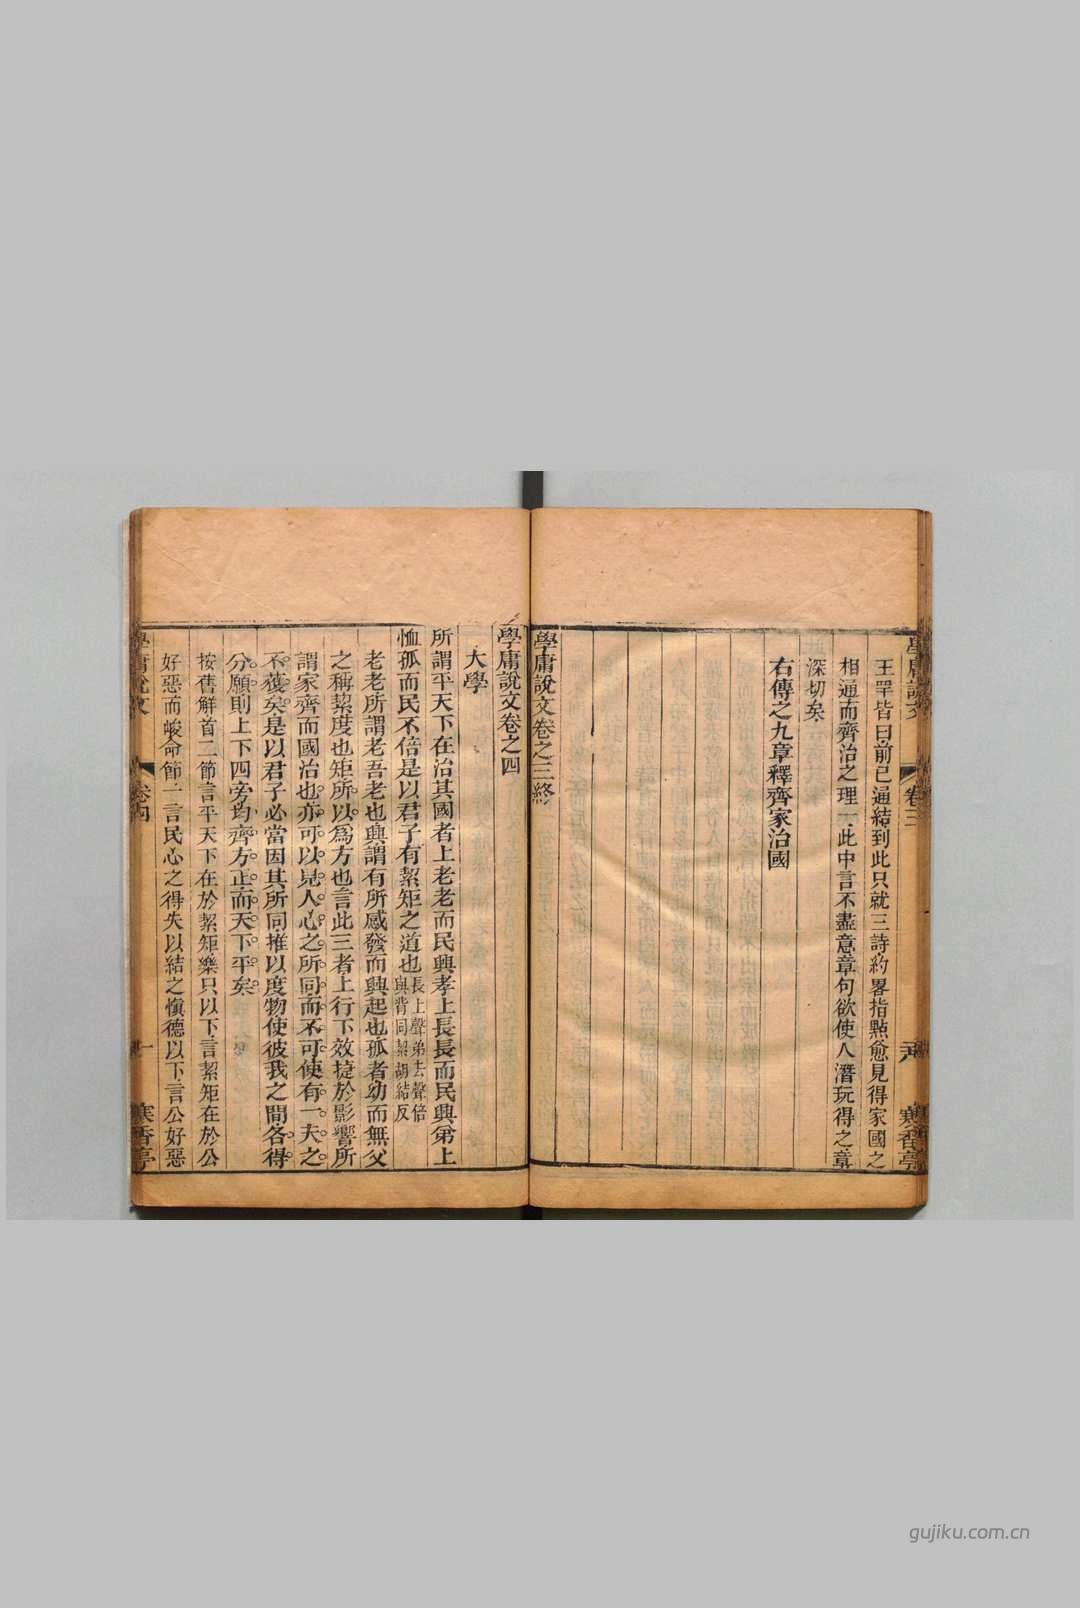 王罕皆曰前已通結到此只就三詩約畧指點愈見得家國之
相通而齊治之理一此中言不盡意章句欲使人潛玩得之章
深切矣
右傳之九章釋齊家治國
學庸說文卷之三終
學庸說文
卷三
寒香亭
學庸說文卷之四
大學
所謂平天下在治其國者上老老而民興孝上長長而民興弟上
恤孤而民不倍是以君子有絜矩之道也長上聲弟去聲倍
與背同絜胡結反
老老所謂老吾老也興謂有所感發而興起也孤者幼而無父
之稱絜度也矩所以爲方也言此三者上行下效捷於影響所
謂家齊而國治也亦可以見人心之所同而不可使有一夫之
不獲矣是以君子必當因其所同推以度物使彼我之間各得
分願則上下四旁均齊方正而天下平矣
按舊解首二節言平天下在於絜矩樂只以下言絜矩在於公
好惡而峻命節一言民心之得失以結之愼德以下言公好惡
學庸說文
卷四
一
寒香亭
gujiku.com.cn